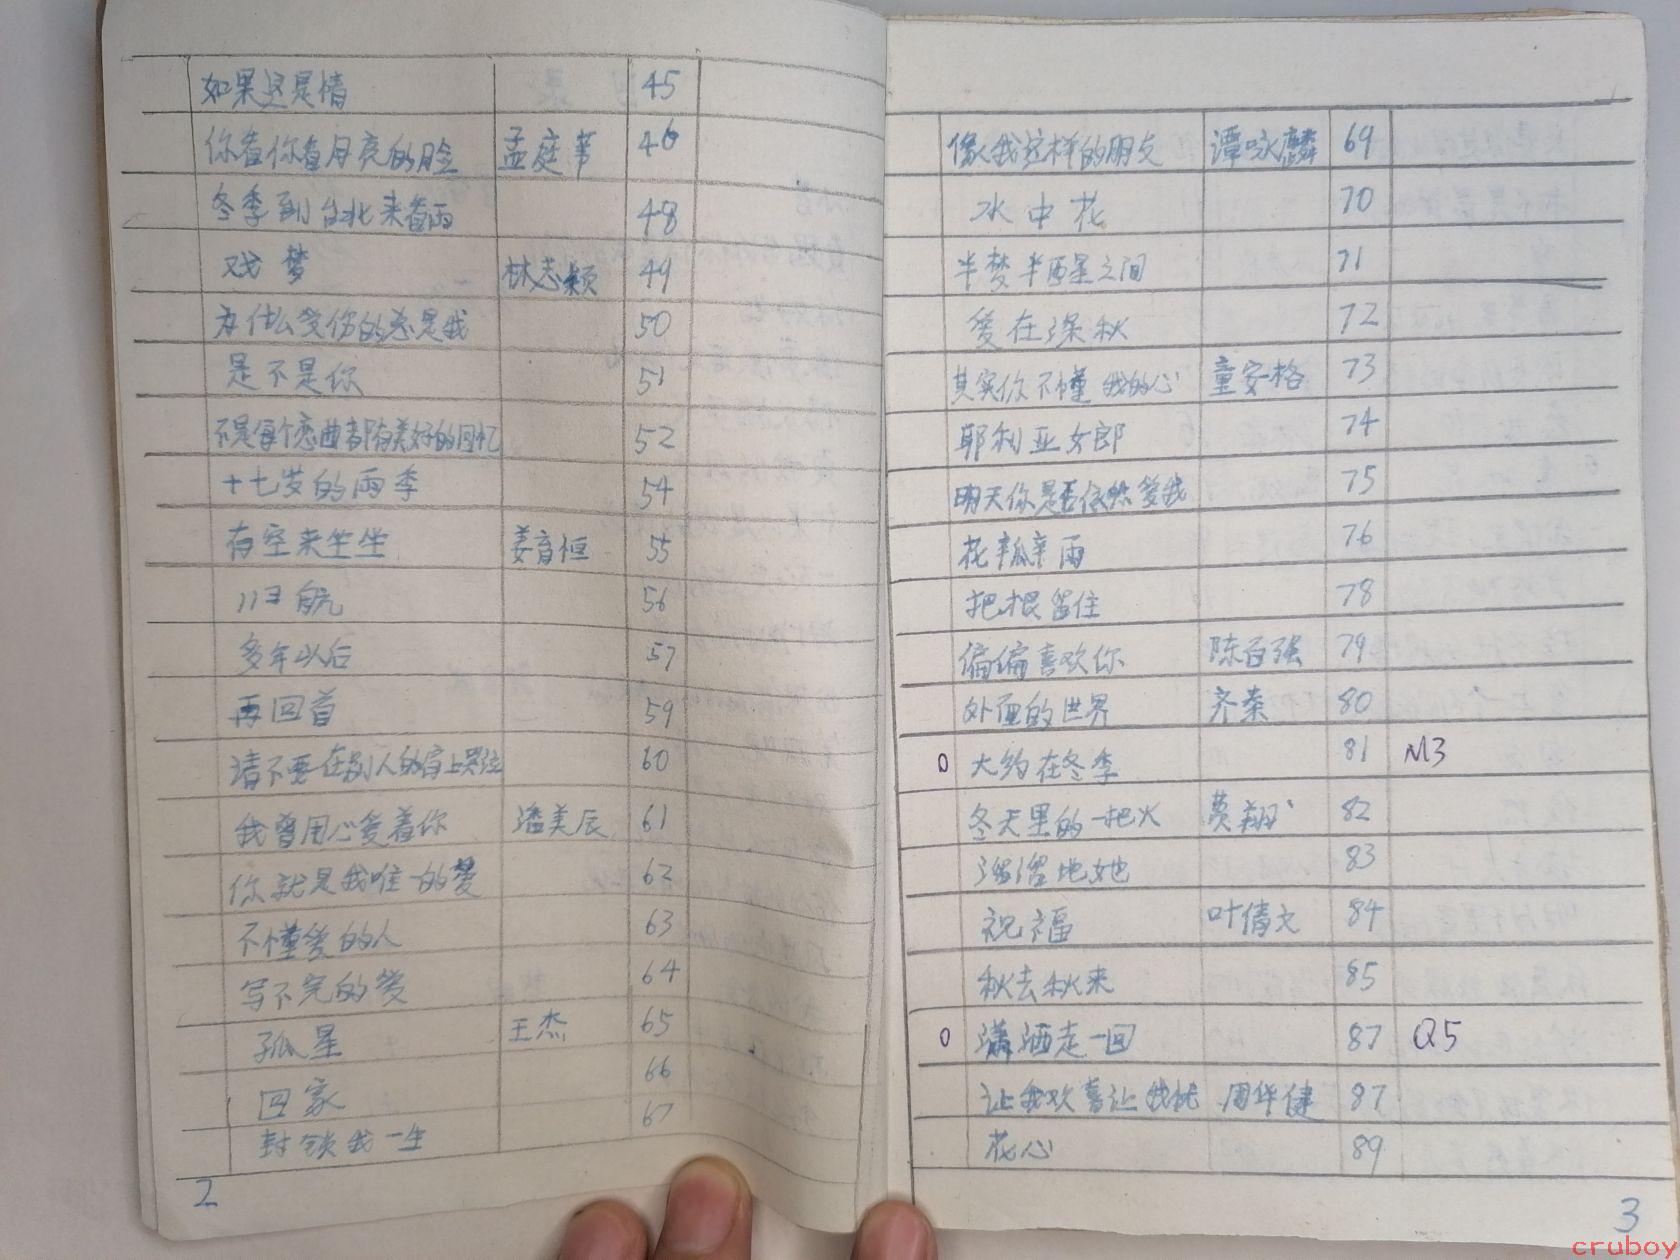 如果这是情 45
你看你看月亮的脸 孟庭苇 46
冬季到台北来看雨 48
戏梦 林志颖 49
为什么受伤的总是我 50
是不是你 51
不是每个恋曲都有美好的回忆 52
十七岁的雨季 54
有空来坐坐 姜育恒 55
归航 56
多年以后 57
再回首 59
请不要在别人的肩上哭泣 60
我曾用心爱着你 潘美辰 61
你就是我唯一的爱 62
不懂爱的人 63
写不完的爱 64
孤星 王杰 65
回家 66
封锁我一生 67
2
像我这样的朋友 谭咏麟 69
水中花 70
半梦半醒之间 71
爱在深秋 72
其实你不懂我的心 童安格 73
耶利亚女郎 74
明天你是否依然爱我 75
花瓣雨 76
把根留住 78
偏偏喜欢你 陈百强 79
外面的世界 齐秦 80
0 大约在冬季 81 M3
冬天里的一把火 费翔 82
溜溜地她 83
祝福 叶倩文 84
秋去秋来 85
0 潇洒走一回 87 Q5
让我欢喜让我忧 周华健 87
花心 89
3
cruboy